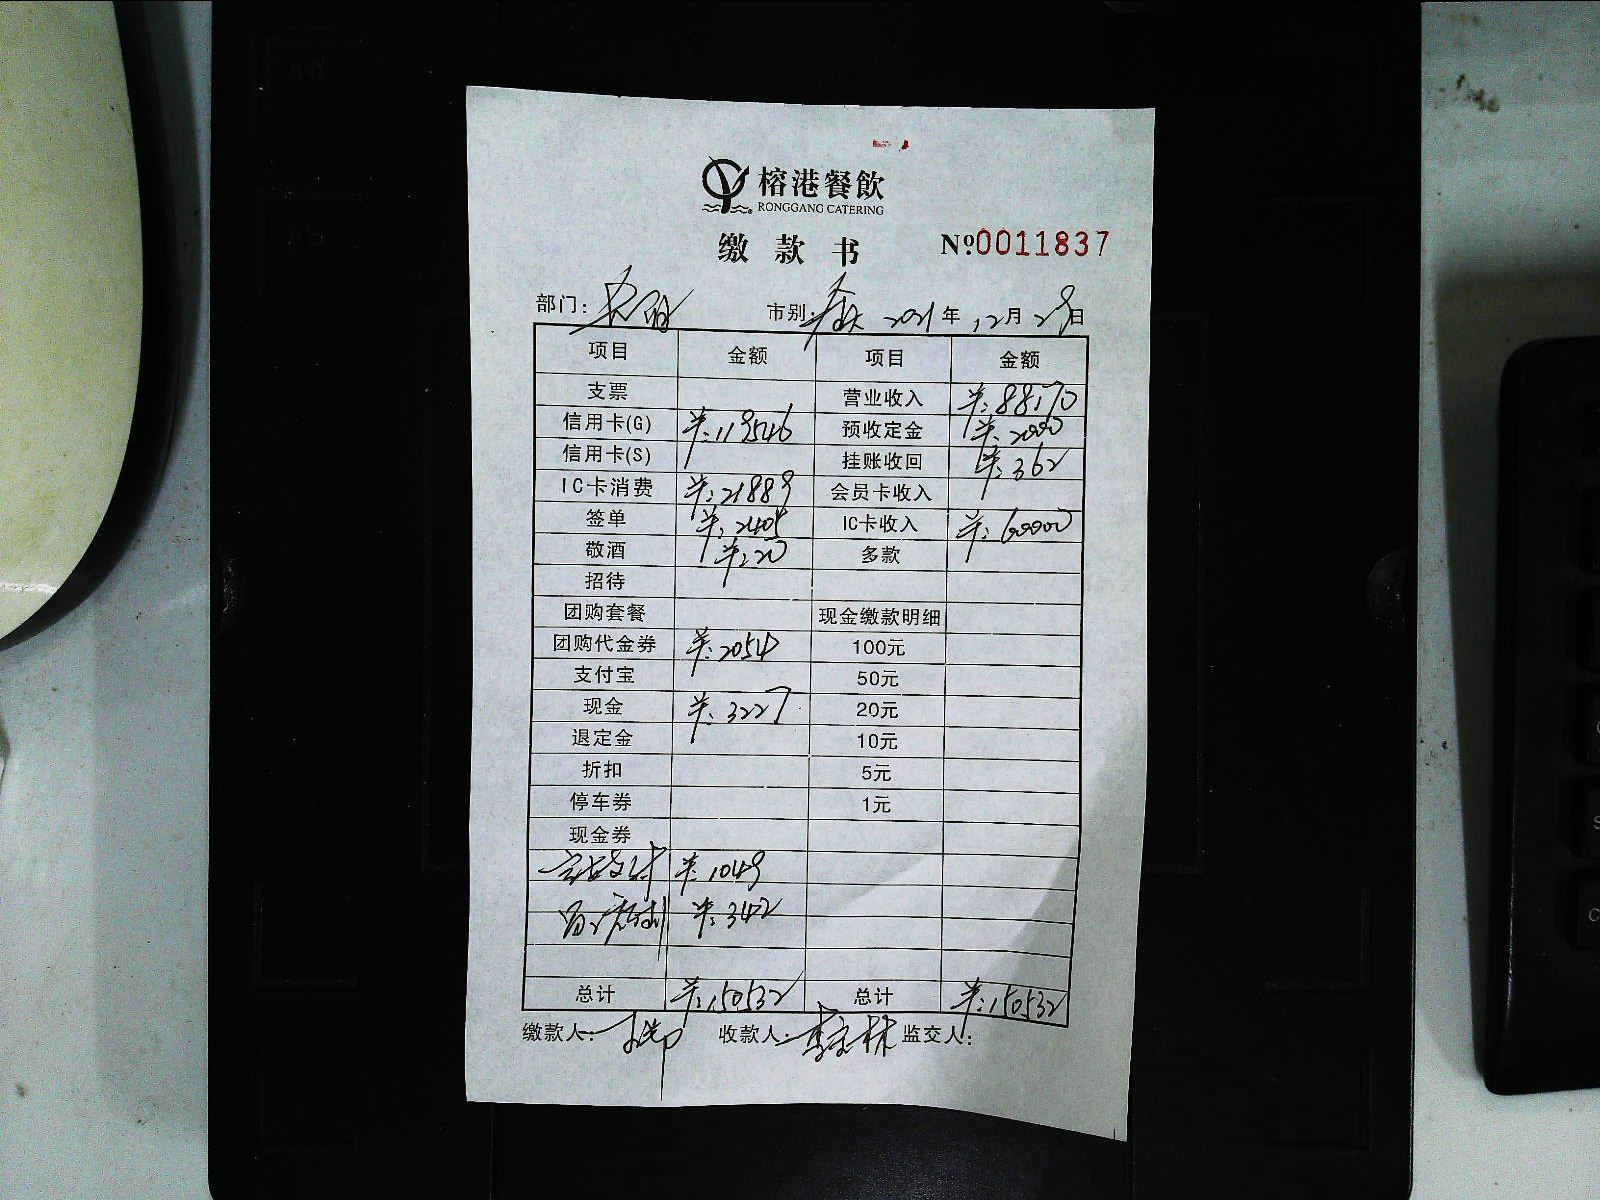 榕港餐飲
RONGGANG CATERING
缴款书 Nº.0011837
部门: 市别: 2021年12月29日
项目 金额 项目 金额
支票 营业收入 ¥:88170
信用卡(G) ¥:119546 预收定金 ¥:2000
信用卡(S) 挂账收回 ¥:362
IC卡消费 ¥:21889 会员卡收入
签单 ¥:2405 IC卡收入 ¥:60000
敬酒 ¥:20 多款
招待
团购套餐 现金缴款明细
团购代金券 ¥:2054 100元
支付宝 50元
现金 ¥:3227 20元
退定金 10元
折扣 5元
停车券 1元
现金券
¥:1049
¥:342
总计 ¥:150532 总计 ¥:150532
缴款人: 收款人: 监交人: